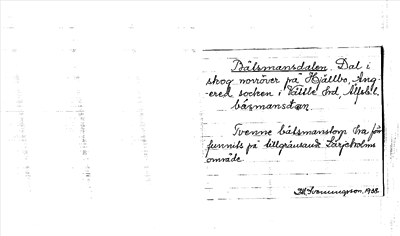 Båtsmansdalen. Dal i
skog norröver på Hjällbo, Ang-
ered socken i Vättle hd, Älfsb.l.
båsmansdan.
Tvenne båtsmanstorp ha för
funnits på tillgränsande Lärjeholms
område